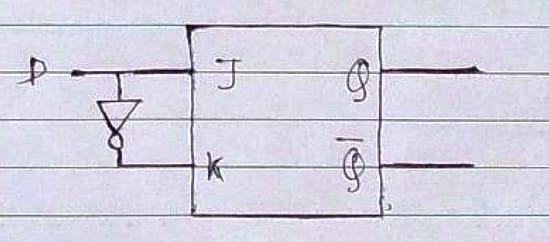 D J Q
K Q̅